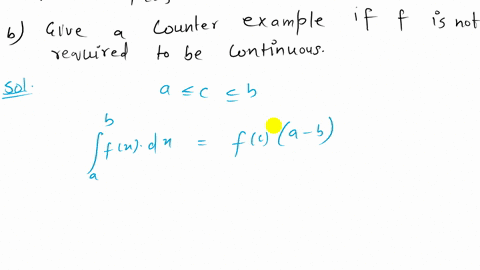 b) Give a counter example if f is not
required to be continuous.
Sol.
a ≤ c ≤ b
∫_a^b f(x)·dx = f(c) (a-b)